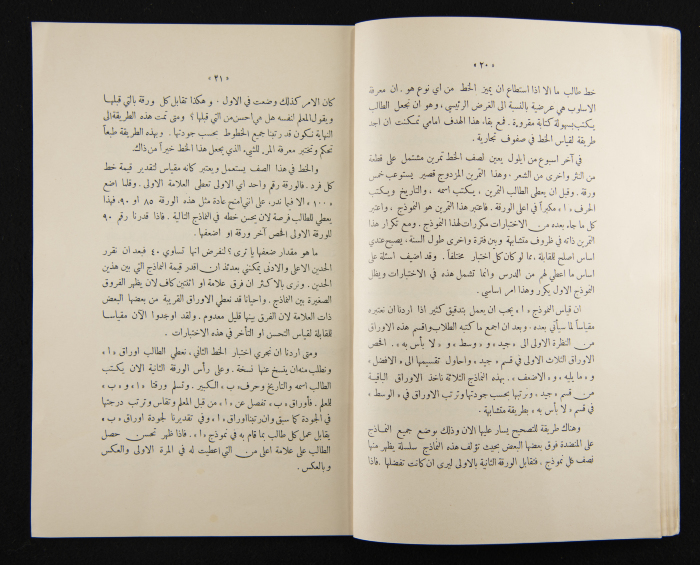 « ٢٠ »
خط طالب ما الا اذا استطاع ان يميز الخط من اي نوع هو . ان معرفة
الاسلوب هي عرضية بالنسبة الى الغرض الرئيسي ، وهو ان نجعل الطالب
يكتب بسهولة كتابة مقروءة . فمع بقاء هذا الهدف امامي تمكنت ان اجد
طريقة لقياس الخط في صفوف تجارية .
في آخر اسبوع من ايلول يعين لصف الخط تمرين مشتمل على قطعة
من النثر واخرى من الشعر ، وهذا التمرين المزدوج قصير يستوعب خمس
ورقة . وقبل ان يعطى الطالب التمرين ، يكتب اسمه ، والتاريخ ويكتب
الحرف « ا » مكبراً في اعلى الورقة . فاعتبر هذا التمرين هو النموذج ، واعتبر
كل ما جاء بعده من الاختبارات مكررات لهذا النموذج . ومع تكرار هذا
التمرين ذاته في ظروف متشابهة وبين فترة واخرى طول السنة ، يصبح عندي
اساس اصلح للمقابلة ، مما لو كان كل اختبار مختلفاً . وقد اضيف اسئلة على
اساس ما اعطي لهم من الدرس وانما تشمل هذه في الاختبارات ويظل
النموذج الاول يكرر وهذا امر اساسي .
ان قياس النموذج « ا » يجب ان يعمل بتدقيق كثير اذا اردنا ان نعتبره
مقياساً لما سيأتي بعده . وبعد ان اجمع ما كتبه الطلاب واقسم هذه الاوراق
من النظرة الاولى الى « جيد » و « وسط » و « لا بأس به » . افحص
الاوراق الثلاث الاولى في قسم « جيد » واحاول تقسيمها الى « الافضل »
و « ما يليه » و « الاضعف » . بهذه النماذج الثلاثة ناخذ الاوراق الباقية
من قسم « جيد » ونرتبها بحسب جودتها ونرتب الاوراق في « الوسط »
في قسم « لا بأس به » بطريقة متشابهة .
وهناك طريقة للتصحيح يسار عليها الان وذلك بوضع جميع النماذج
على المنضدة فوق بعضها البعض بحيث تؤلف هذه النماذج سلسلة يظهر منها
نصف كل نموذج . فنقابل الورقة الثانية بالاولى ليرى ان كانت تفضلها . فاذا
« ٢١ »
كان الامر كذلك وضعت في الاول . وهكذا تقابل كل ورقة بالتي قبلها
ويقول المعلم لنفسه هل هي احسن من التي قبلها ؟ ومتى تمت هذه الطريقة الى
النهاية نكون قد رتبنا جميع الخطوط بحسب جودتها . وبهذه الطريقة طبعاً
تحكم وتختبر معرفة المرء للشيء الذي يجعل هذا الخط خيراً من ذاك .
والخط في هذا الصف يستعمل ويعتبر كانه مقياس لتقدير قيمة خط
كل فرد . فالورقة رقم واحد اي الاولى تعطى العلامة الاولى . وقلما اضع
« ١٠٠ » الا فيما ندر ، على انني امنح عادة مثل هذه الورقة ٨٥ او ٩٠ . فهذا
يعطي للطالب فرصة لان يحسن خطه في النماذج التالية . فاذا قدرنا رقم ٩٠
للورقة الاولى افحص آخر ورقة او اضعفها .
ما هو مقدار ضعفها يا ترى ؟ لنفرض انها تساوي ٤٠ فبعد ان نقرر
الحدين الاعلى والادنى يمكنني بعدئذ ان اقدر قيمة النماذج التي بين هذين
الحدين . ونرى بالاكثر ان فرق علامة او اثنتين كاف لان يظهر الفروق
الصغيرة بين النماذج . واحيانا قد نعطي الاوراق القريبة من بعضها البعض
ذات العلامة لان الفرق بينها قليل معدوم . ولقد اوجدوا الآن مقياسا
للمقابلة لقياس التحسن او التأخر في هذه الاختبارات .
ومتى اردنا ان نجري اختبار الخط الثاني ، نعطي الطالب اوراق « ا »
ونطلب منه ان ينسخ عنها نسخة . وعلى رأس الورقة الثانية الان يكتب
الطالب اسمه والتاريخ وحرف « ب » الكبير . وتسلم ورقتا « ا » و « ب »
للمعلم . فأوراق « ب » تفصل عن « ا » من قبل المعلم وتقاس وترتب درجتها
في الجودة كما سبق وان رتبنا اوراق « ا » وفي تقديرنا لجودة اوراق « ب »
يقابل عمل كل طالب بما قام به في نموذج « ا » . فاذا ظهر تحسن حصل
الطالب على علامة اعلى من التي اعطيت له في المرة الاولى والعكس
وبالعكس .